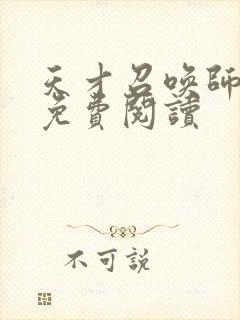 天才召唤師
免費閱讀
不可説